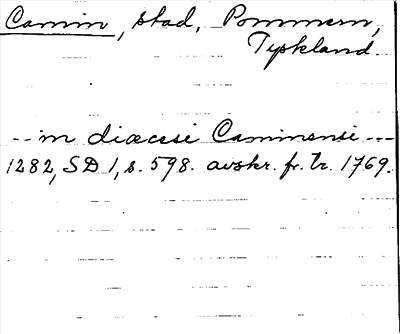 Camin, stad, Pommern,
Tyskland.
-- in diœcesi Caminensi ---
1282, SD 1, s. 598. avskr. fr. tr. 1769.